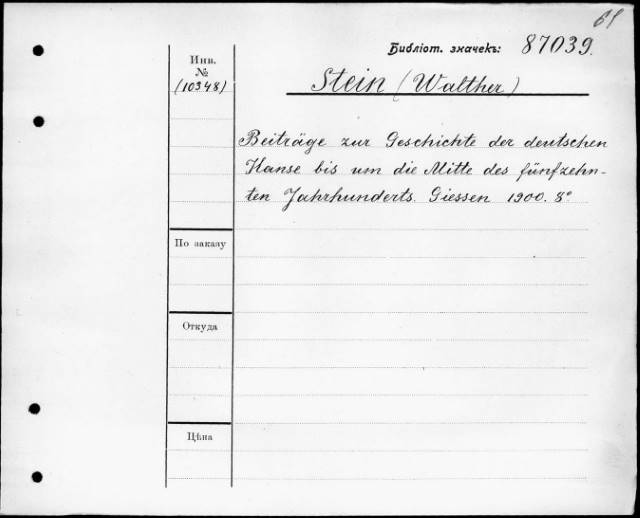 61
Библіот. значекъ: 87039.
Инв.
№
(10348)
Stein (Walther)
Beiträge zur Geschichte der deutschen
Hanse bis um die Mitte des fünfzehn-
ten Jahrhunderts. Giessen 1900. 8°
По заказу
Откуда
Цѣна